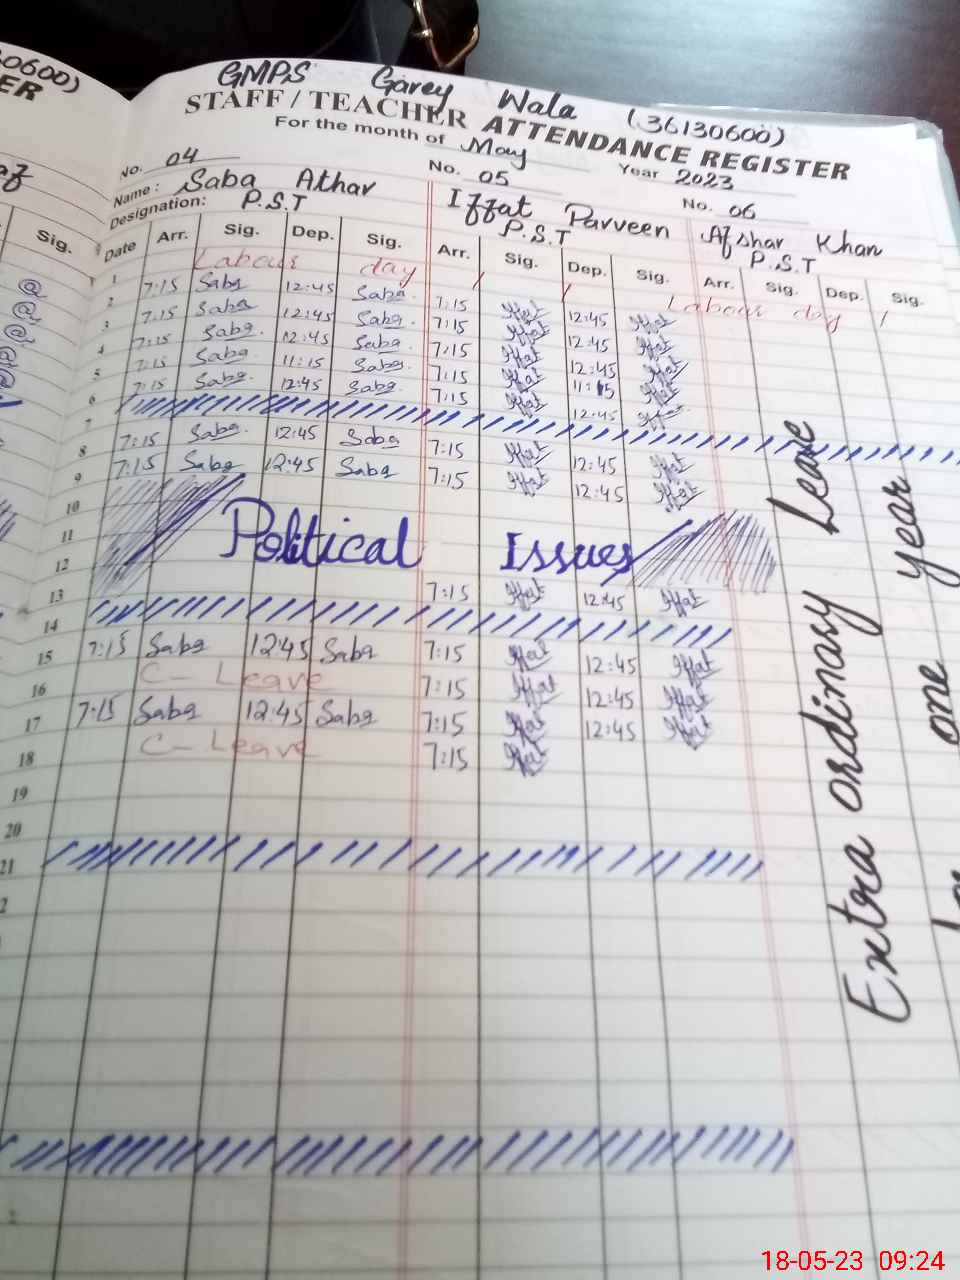 30600)
ER
GMPS Garey Wala (36130600)
STAFF / TEACHER ATTENDANCE REGISTER
For the month of May Year 2023
No. 04 No. 05 No. 06
Name: Saba Athar Iffat Parveen Afshar Khan
Designation: P.S.T P.S.T P.S.T
Sig. Date Arr. Sig. Dep. Sig. Arr. Sig. Dep. Sig. Arr. Sig. Dep. Sig.
1 Labour day Labour day
2 7:15 Saba 12:45 Saba 7:15 Iffat 12:45 Iffat
3 7:15 Saba 12:45 Saba 7:15 Iffat 12:45 Iffat
4 7:15 Saba 12:45 Saba 7:15 Iffat 12:45 Iffat
5 7:15 Saba 11:15 Saba 7:15 Iffat 11:15 Iffat
6 7:15 Saba 12:45 Saba 7:15 Iffat 12:45 Iffat
7
8 7:15 Saba 12:45 Saba 7:15 Iffat 12:45 Iffat
9 7:15 Saba 12:45 Saba 7:15 Iffat 12:45 Iffat
10
11 Political Issues
12
13 7:15 Iffat 12:45 Iffat
14
15 7:15 Saba 12:45 Saba 7:15 Iffat 12:45 Iffat
16 C- Leave 7:15 Iffat 12:45 Iffat
17 7:15 Saba 12:45 Saba 7:15 Iffat 12:45 Iffat
18 C- Leave 7:15 Iffat
19
20
21
2
Extra ordinary Leave
one year
18-05-23 09:24